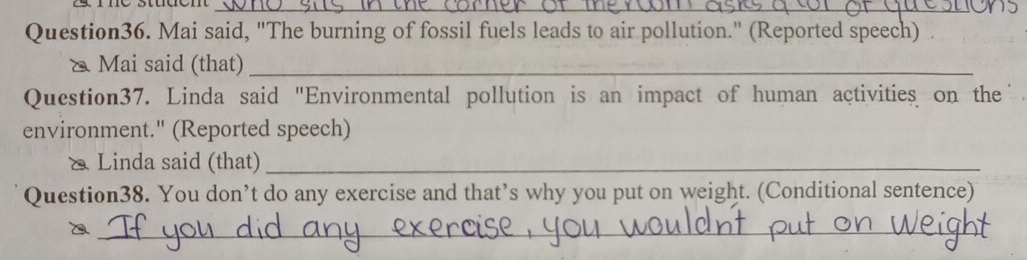 The student who sits in the corner of the room asks a lot of questions
Question36. Mai said, "The burning of fossil fuels leads to air pollution." (Reported speech)
Mai said (that)
Question37. Linda said "Environmental pollution is an impact of human activities on the
environment." (Reported speech)
Linda said (that)
Question38. You don't do any exercise and that's why you put on weight. (Conditional sentence)
If you did any exercise, you wouldn't put on weight